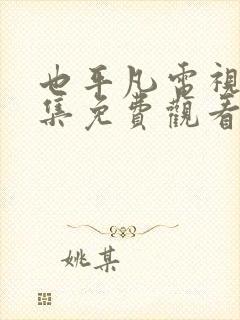 也平凡電視
集免費觀看
姚某